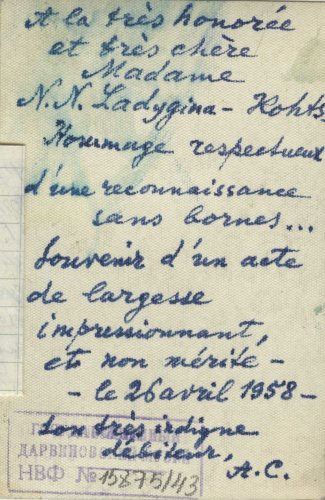 A la très honorée
et très chère
Madame
N.N. Ladygina-Kohts,
Hommage respectueux
d'une reconnaissance
sans bornes...
Souvenir d'un acte
de largesse
impressionnant,
et non mérite -
- le 26 avril 1958 -
son très indigne
débiteur, A.C.
ДАРВИНОВСКИЙ
НВФ № 15875/43